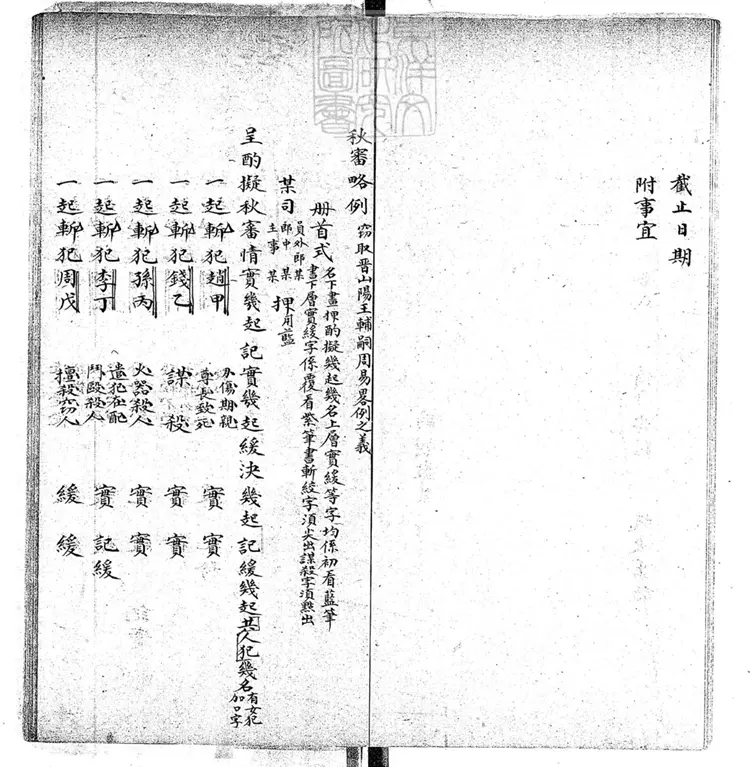 截止日期
附事宜
秋審略例 竊取晋山陽王輔嗣周易畧例之義
册首式 名下畫押酌擬幾起幾名上層實緩等字均係初看藍筆
書下層實緩字係覆看紫筆書斬絞字須尖出謀殺字須㸃出
某司 員外郎某
郎中 某
主事 某
押用藍
呈酌擬秋審情實幾起 記實幾起緩決幾起 記緩幾起共人犯幾名有女犯
加口字
一起斬犯趙甲 刃傷期親
尊長致死 實 實
一起斬犯錢乙 謀殺 實 實
一起斬犯孫丙 火器殺人 實 實
一起斬犯李丁 遣犯在配
鬥毆殺人 實 記緩
一起斬犯周戊 擅殺竊人 緩 緩
東洋文
化研究
所圖書